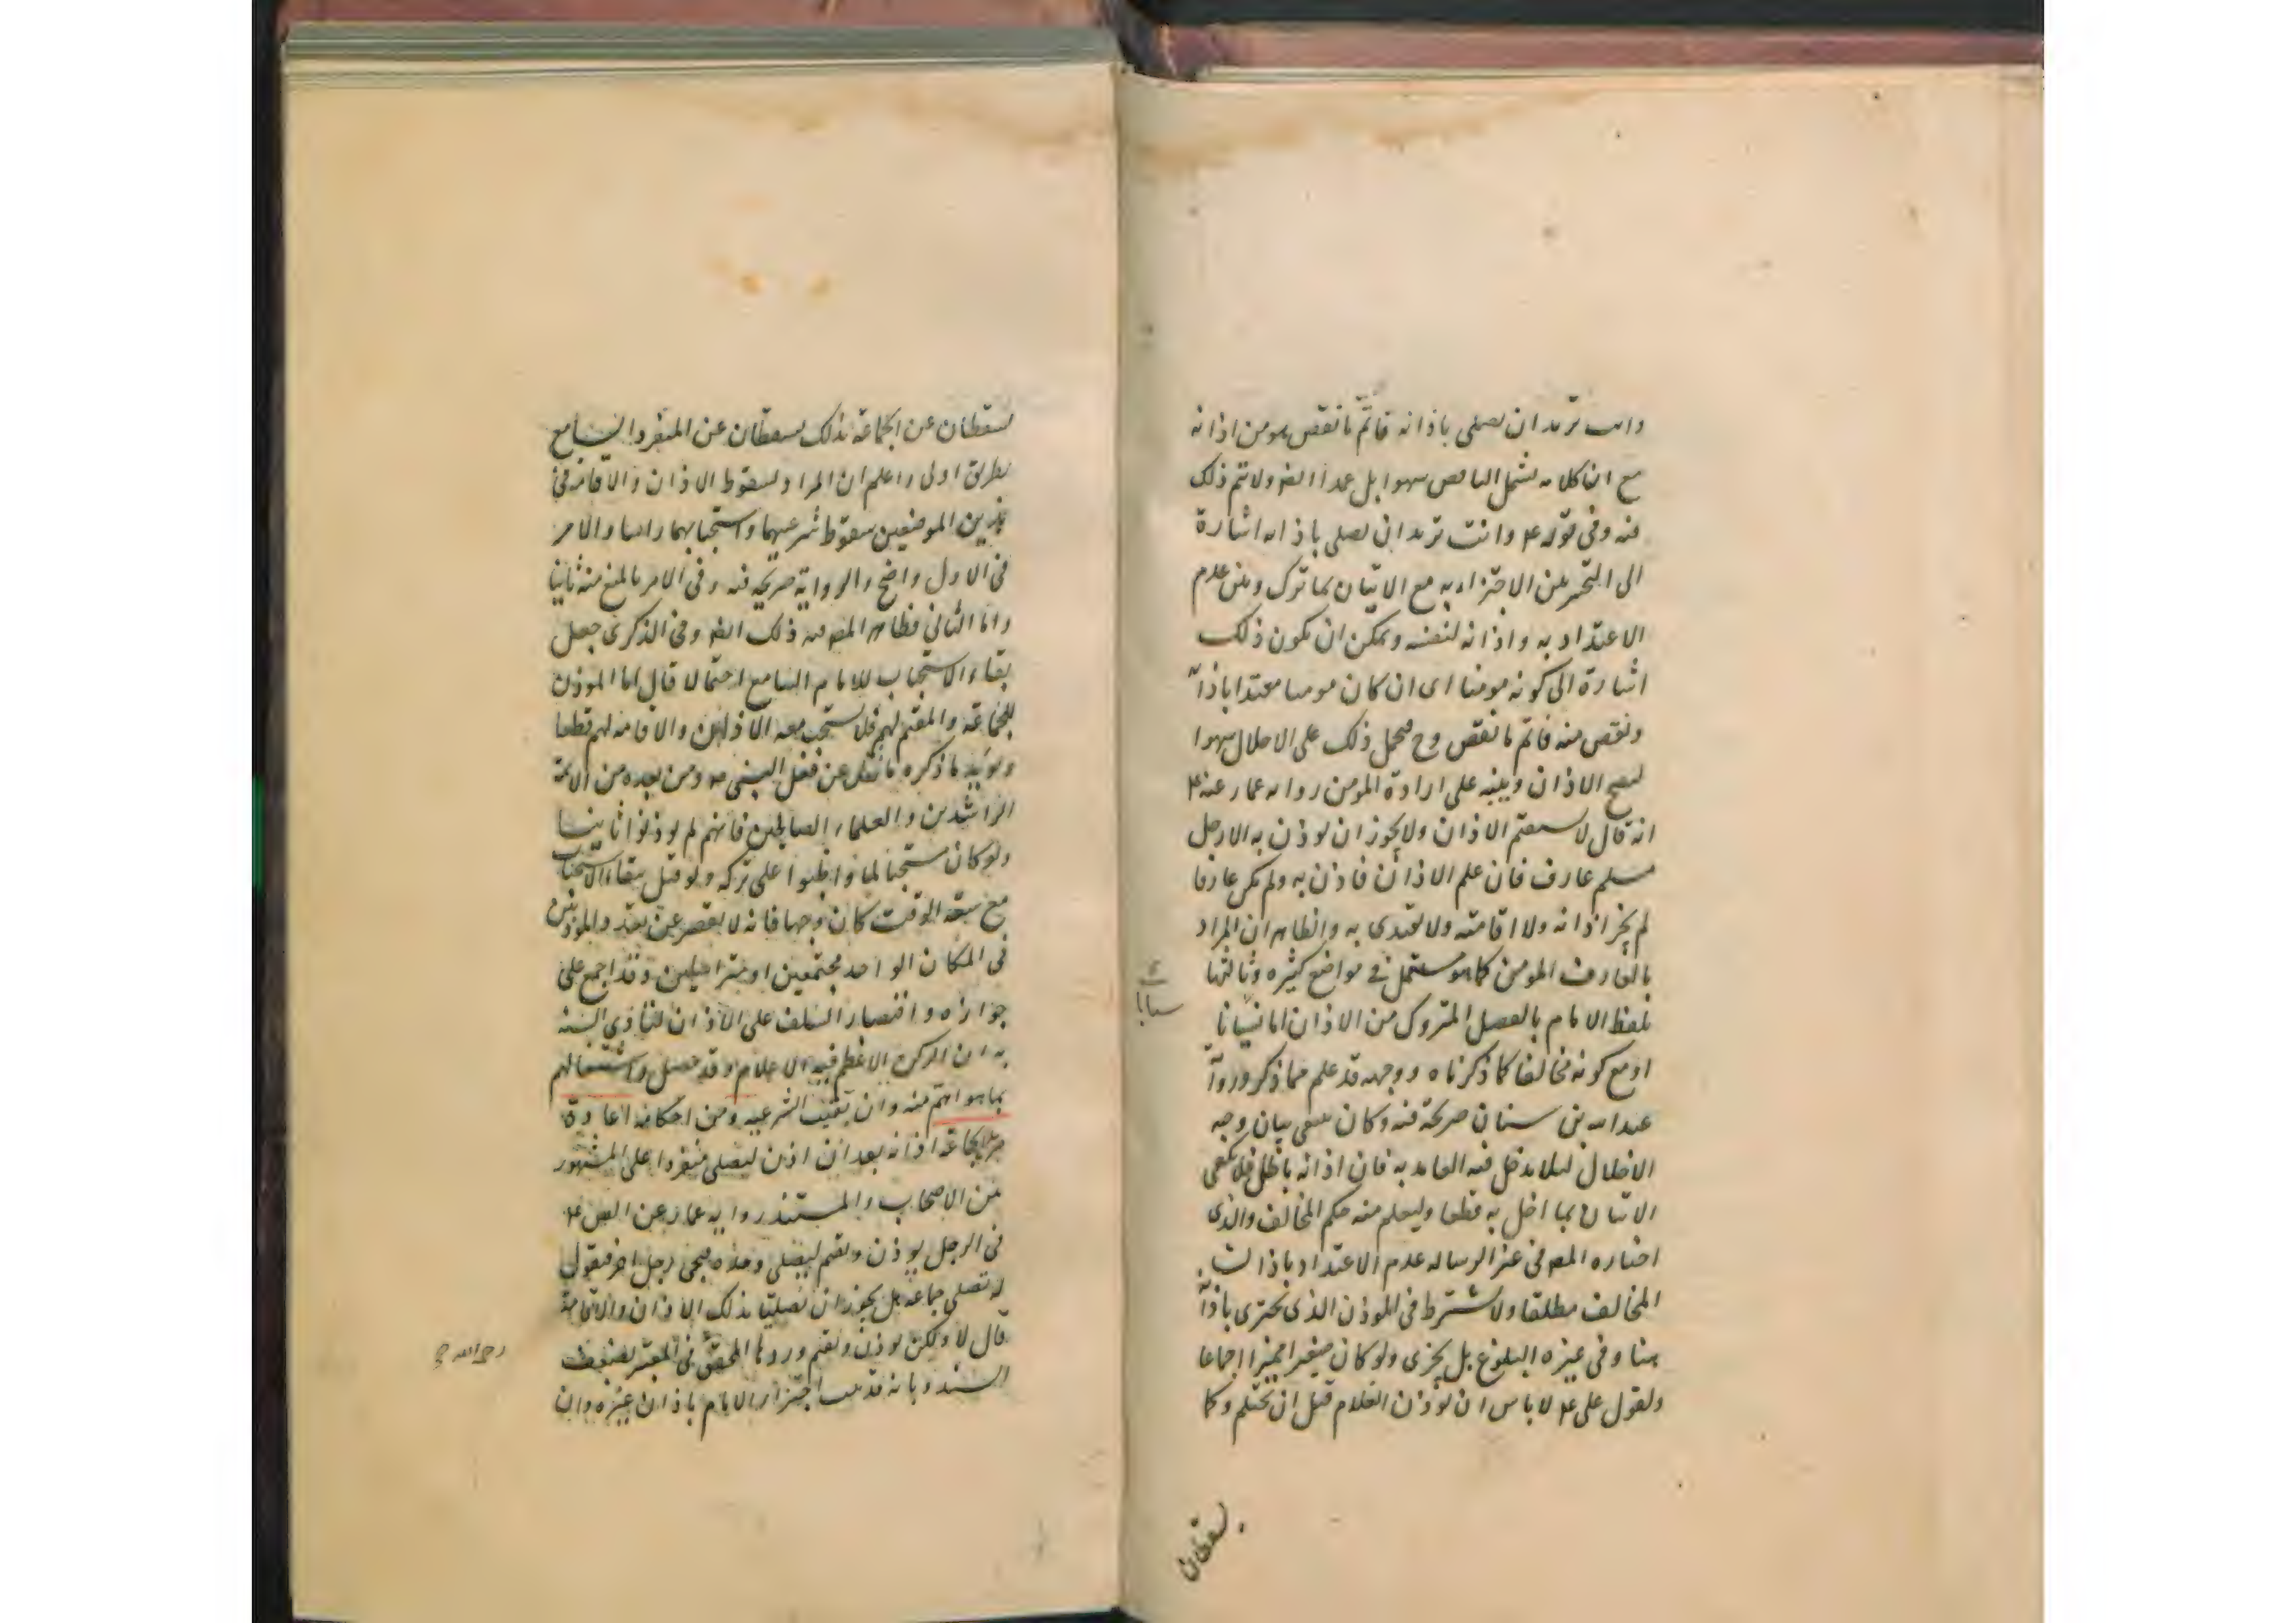 وانت تريد ان تصلى باذانه فاتم ما نقص هو من اذانه
مع ان كلامه يشمل الناقص سهوا بل عمدا ايضا ولا يتم ذلك
فيه وفى قوله ع وانت تريد ان تصلى باذانه اشارة
الى التخيير بين الاجتزاء به مع الاتيان بما ترك وبين عدم
الاعتداد به واذانه لنفسه ويمكن ان يكون ذلك
اشارة الى كونه مومنا اى ان كان مومنا معتدا باذانه
ونقص منه فاتم ما نقص وح فيحمل ذلك على الاخلال سهوا
ليصح الاذان وينبه على ارادة المومن رواية عمار عنه ع
انه قال لا يستقيم الاذان ولا يجوز ان يوذن به الا رجل
مسلم عارف فان علم الاذان فاذن به ولم يكن عارفا
لم يجز اذانه ولا اقامته ولا يقتدى به والظاهر ان المراد
بالعارف المومن كما هو مستعمل فى مواضع كثيره وثالثها
تلفظ الامام بالفصل المتروك من الاذان اما نسيانا
او مع كونه مخالفا كما ذكرناه ووجهه قد علم مما ذكر ورواية
عبد الله بن سنان صريحة فيه وكان ينبغى بيان وجه
الاخلال ليلا يدخل فيه العامد به فان اذانه باطل فلا يكفى
الاتيان بما اخل به قطعا وليعلم منه حكم المخالف والذى
اختاره المص فى غير الرساله عدم الاعتداد باذان
المخالف مطلقا ولا يشترط فى الموذن الذى يجتزى باذانه
هنا وفى غيره البلوغ بل يجزى ولو كان صغيرا مميزا اجماعا
ولقول على ع لا باس ان يوذن الغلام قبل ان يحتلم وكما
يسقطان
يسقطان عن الجماعة بذلك يسقطان عن المنفرد السامع
بطريق اولى واعلم ان المراد بسقوط الاذان والاقامة فى
هذين الموضعين سقوط شرعيهما واستحبابهما راسا والامر
فى الاول واضح والرواية صريحة فيه وفى الامر بالمنع منه ثانيا
واما الثانى فظاهر المص فيه ذلك ايضا وفى الذكرى جعل
بقاء الاستحباب للامام السامع احتمالا قال اما الموذن
للجماعة والمقيم لهم فلا يستحب معه الاذان والاقامة لهم قطعا
ويويد ما ذكره ما نقل عن فعل النبى ص ومن بعده من الائمة
الراشدين والعلماء الصالحين فانهم لم يوذنوا ثانيا
ولو كان مستحبا لما واظبوا على تركه ولو قيل ببقاء الاستحباب
مع سعة الوقت كان وجها فانه لا يقصر عن تعدد الموذنين
فى المكان الواحد مجتمعين او متراسلين وقد اجمع على
جوازه واقتصار السلف على الاذان لتادى السنة
به ان الركن الاعظم فيه الاعلام وقد حصل واشتغالهم
بما هو اهم منه وان بقيت الشرعيه ومن احكامه اعادة
مريد الجماعة اذانه بعد ان اذن ليصلى منفردا على المشهور
من الاصحاب والمستند رواية عمار عن الص ع
فى الرجل يوذن ويقيم ليصلى وحده فيجى رجل اخر فيقول
له نصلى جماعة هل يجوز ان يصليا بذلك الاذان والاقامة
قال لا ولكن يوذن ويقيم وردها المحقق فى المعتبر بضعف
السند وبانه قد ثبت اجتزاء الامام باذان غيره وان
رحمه الله